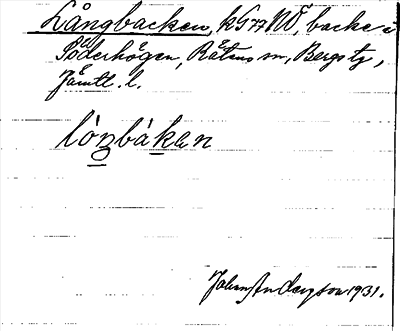 Långbacken, kG77NÖ, backe i
Söderhögen, Rätans sn, Bergs tg,
Jämtl. l.
lòŋbákan
Johan Anderson 1931.